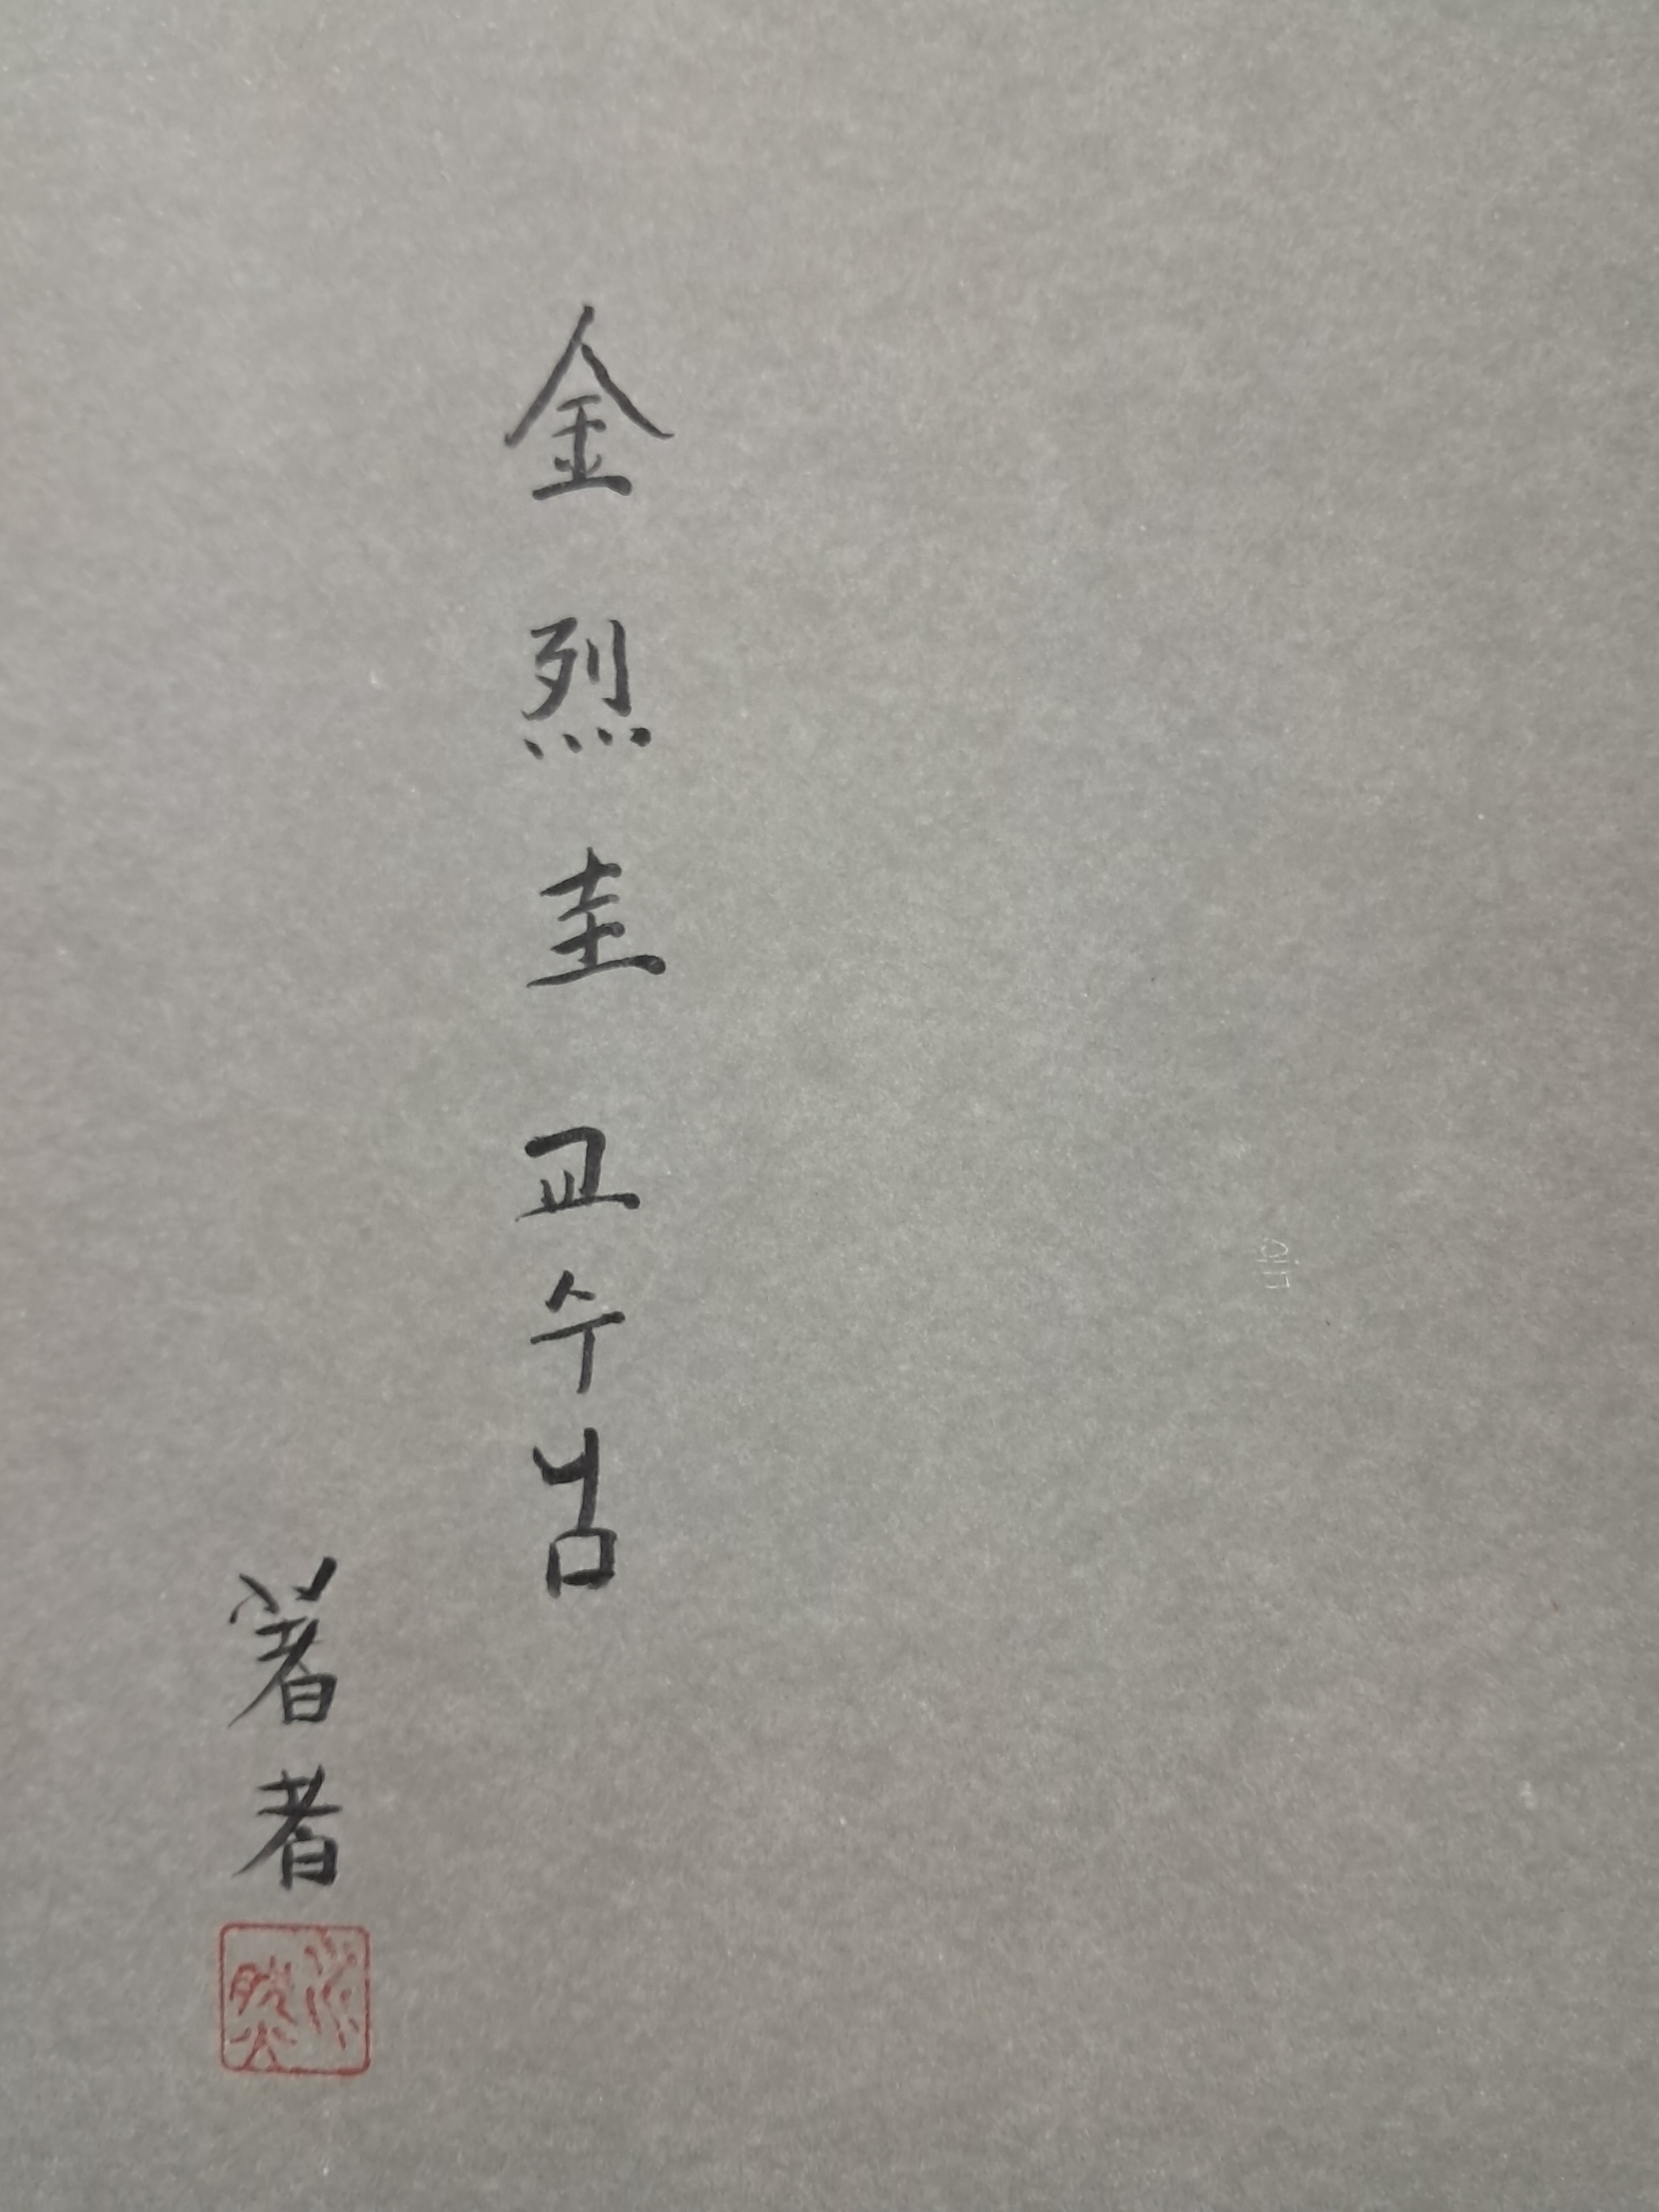 金烈圭 교수님
著者